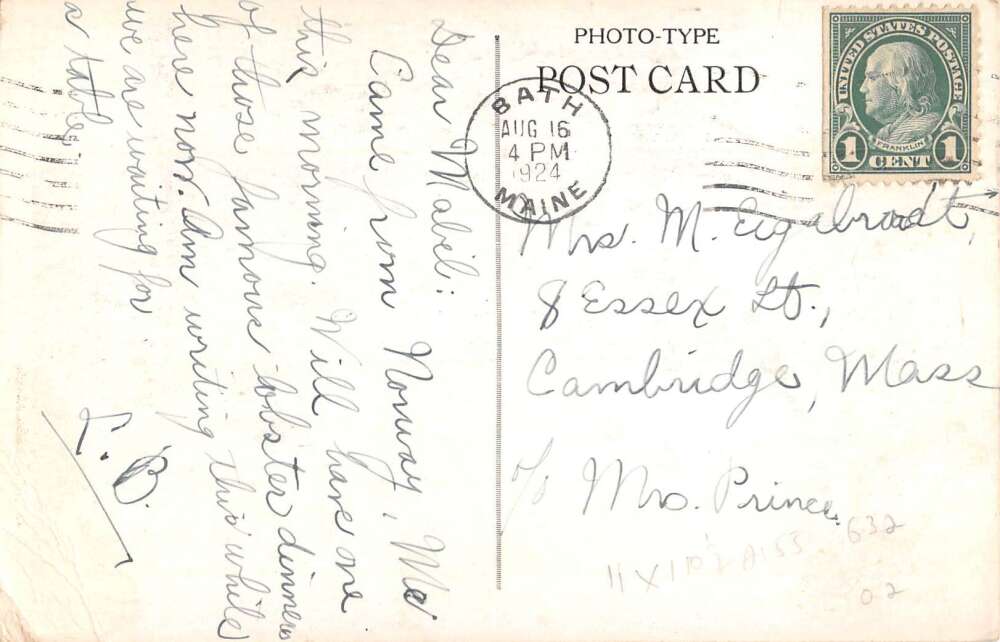 PHOTO-TYPE
POST CARD
UNITED STATES POSTAGE
FRANKLIN
1 CENT 1
BATH
AUG 16
4 PM
1924
MAINE
Dear Mabel:
Came from Norway, Me
this morning. Will have one
of those famous lobster dinners
here now. Am writing this while
we are waiting for
a table.
L. B.
Mrs. M. Eigabroadt,
8 Essex St.,
Cambridge, Mass
c/o Mrs. Prince.
632
02